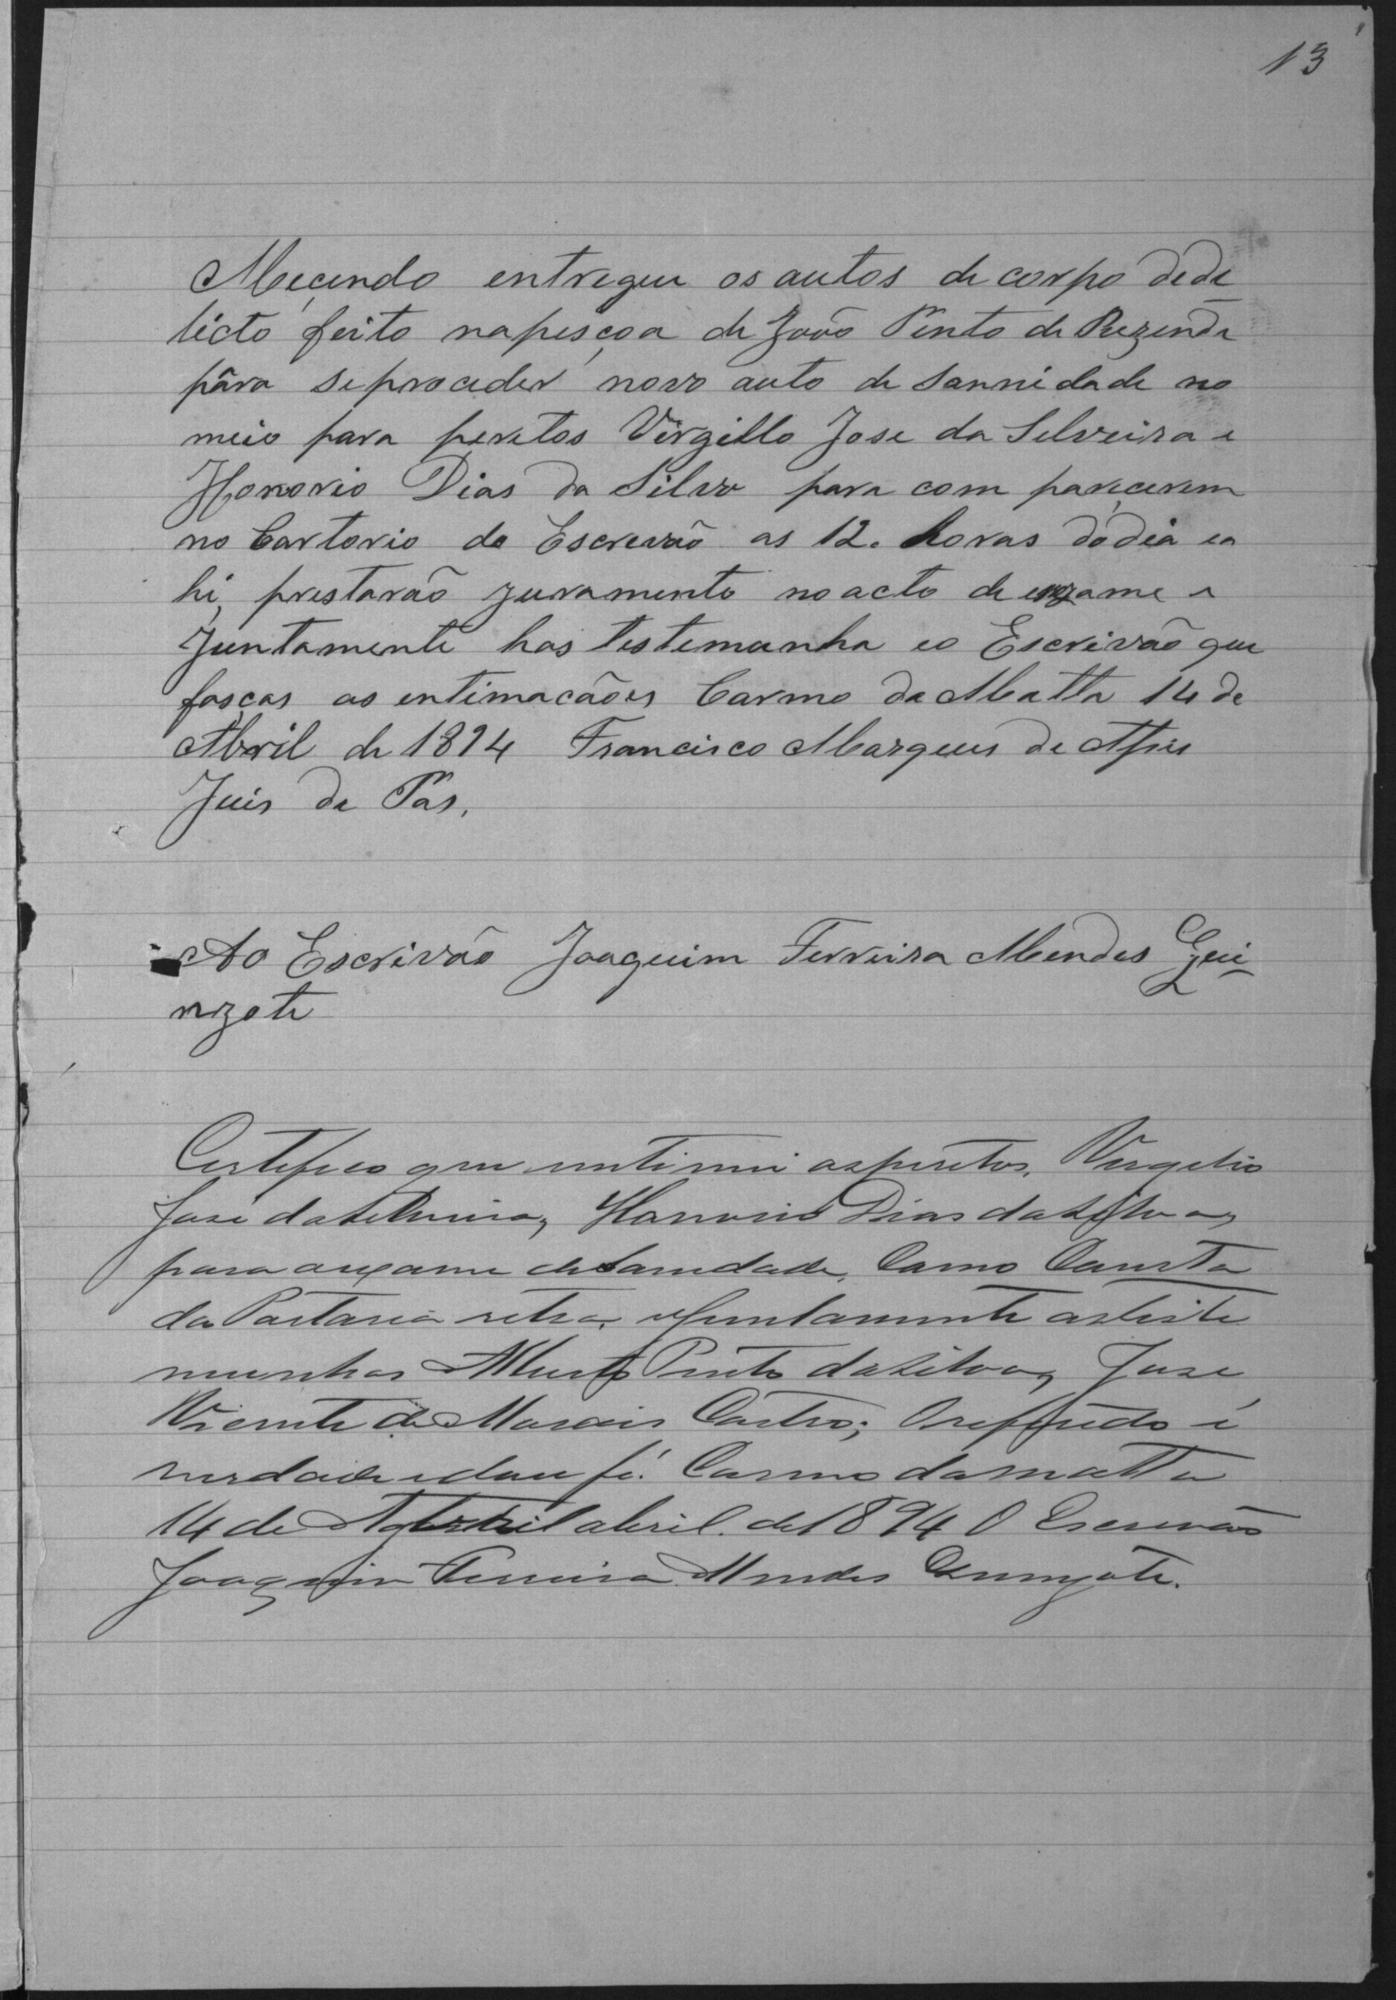 13
Meçendo entregue os autos de corpo de de
licto feito na pesçoa de João Pinto de Rezende
pâra se proceder novo auto de sannidade no
meio para peretos Virgillo Jose da Silveira e
Honorio Dias da Silva para com parecerem
no Cartorio do Escrevão as 12. horas do dia ea
hi, prestarão juramento no acto de exzame e
Juntamente has testemunha eo Escrivão que
fasças as entimacãoes Carmo da Matta 14 de
Abril de 1894 Francisco Marques de Assis
Juis de Pas.
Ao Escrivão Joaquim Ferreira Mendes Gui
nzote
Certefico que intimei as peretos, Vergelio
José da Silveira, Honorio Dias da Silva,
para oexame de Sanidade, Como Consta
da Portaria retro, e Juntamente as teste
munhas Alberto Pinto da Silva, Jose
Vicente de Morais Castro; O referido é
verdade e dou fé. Carmo da matta
14 de abril. de 1894 O Escrevão
Joaquim Ferreira Mendes Gunzote.